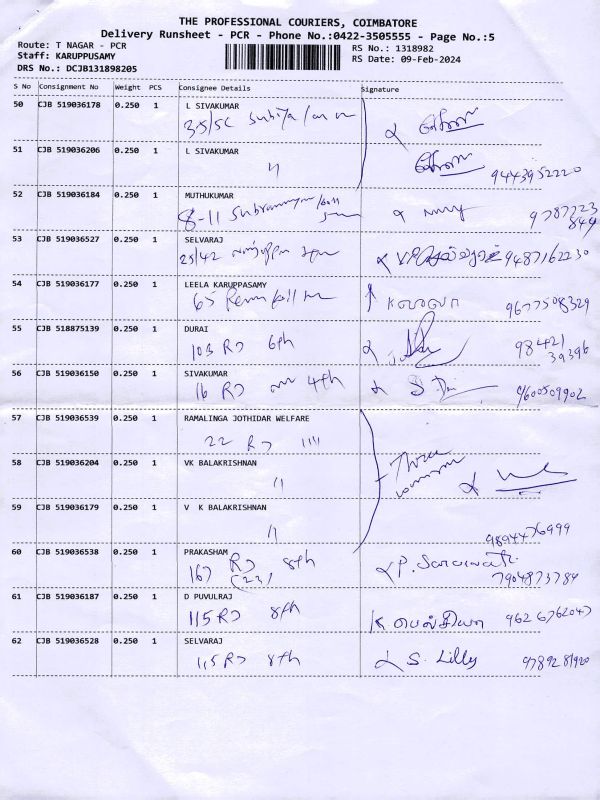 THE PROFESSIONAL COURIERS, COIMBATORE
Delivery Runsheet - PCR - Phone No.:0422-3505555 - Page No.:5
Route: T NAGAR - PCR
RS No.: 1318982
Staff: KARUPPUSAMY
RS Date: 09-Feb-2024
DRS No.: DCJB131898205
S No Consignment No Weight PCS Consignee Details Signature
50 CJB 519036178 0.250 1 L SIVAKUMAR
35/5C
51 CJB 519036206 0.250 1 L SIVAKUMAR
"
9443952220
52 CJB 519036184 0.250 1 MUTHUKUMAR
8-11
9787223
844
53 CJB 519036527 0.250 1 SELVARAJ
25/42
9487162230
54 CJB 519036177 0.250 1 LEELA KARUPPASAMY
65
9677508329
55 CJB 518875139 0.250 1 DURAI
103 RJ 6th
98421
39396
56 CJB 519036150 0.250 1 SIVAKUMAR
16 RJ 4th
9600509902
57 CJB 519036539 0.250 1 RAMALINGA JOTHIDAR WELFARE
22 RJ
58 CJB 519036204 0.250 1 VK BALAKRISHNAN
"
Three
59 CJB 519036179 0.250 1 V K BALAKRISHNAN
"
9894476999
60 CJB 519036538 0.250 1 PRAKASHAM
167 RJ 8th
(223)
P. Saraswathi
7904873784
61 CJB 519036187 0.250 1 D PUVULRAJ
115 RJ 8th
9626762047
62 CJB 519036528 0.250 1 SELVARAJ
115 RJ 8th
S. Lilly
9789281920